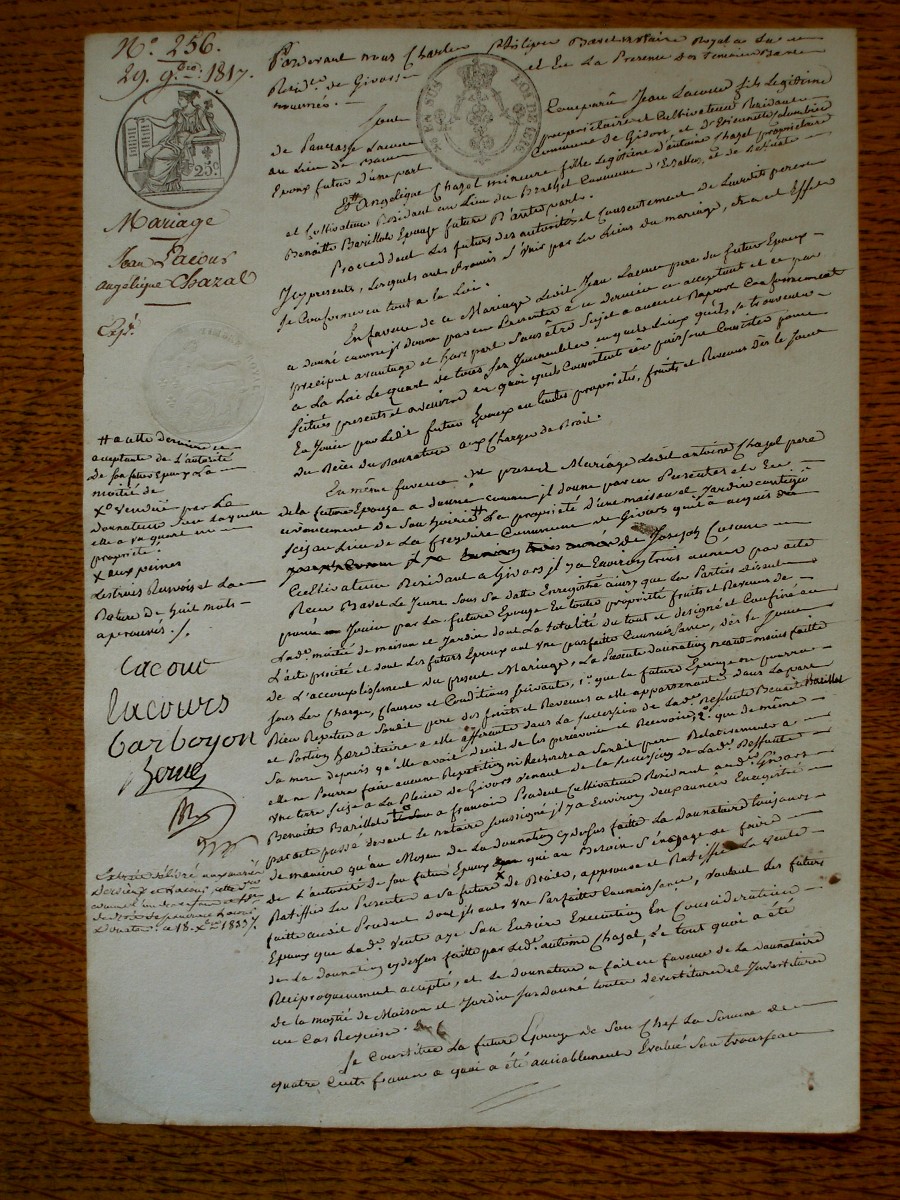 N.º 256.
29. 9.bre 1817.
25.c
Mariage
Jean Lacour
angélique Chazal
Expé.
Pardevant nous Charles Philippe Bavet notaire Royal a la
Resid.ce de Givors et En La Presence Des temoins Bas
nommés.
Sont Comparu Jean Lacour fils Legitime
de Pancrasse Lacour proprietaire et Cultivateur Residant
au Lieu de Commune de Givors, et d'Etiennette
Epoux futur d'une part
Et angélique Chazal mineure fille Legitime d'antoine Chazal proprietaire
et Cultivateur Residant au Lieu du Commune d' et de
Benoitte Barillot Epouse future D'autre part.
Proceddant Les futurs des autorités et Consentement de Leursdits peres
Icy presents, Lesquels ont promis S'unir par Les Liens du mariage, et a cet Effet
Se Conformer en tout a la Loi.
En faveur de ce Mariage Ledit Jean Lacour pere du futur Epoux
a donné comme il donne par ces Presentes a ce dernier ce acceptant et ce par
préciput avantage et hors part Sans être Sujet a aucun Raport Conformement
a La Loi Le quart de tous Ses Immeubles en quels Lieux qu'ils se trouvent
Situés presents et a venir en quoi qu'ils Consistent et puissent Consister pour
En Jouir par Ledit futur Epoux en toutes proprietés, fruits et Revenus Dès le Jour
du Décès du Donnateur aux Charges de Droit.
En même faveur du present Mariage Ledit antoine Chazal pere
de la future Epouse a donné comme il donne par ces Presentes et En
avancement de Son hoirie # La propriété D'une maison et Jardin contigu
Scis au Lieu de La freydiere Commune de Givors qu'il a acquis de
Joseph
Cultivateur Residant a Givors il y a Environ trois années par acte
Reçu Bavet Le Jeune Sous Sa datte Enregistré ainsy que Les Parties Disent
pour Jouir par La future Epouse En toute propriété fruits et Revenus de
Lad.e moitié de maison et Jardin dont La totalité du tout est designé et Confiné au
L'acte précité et dont Les futurs Epoux ont une parfaite Connaissance, dès le Jour
de L'accomplissement du present Mariage, La Presente donnation neant moins faitte
Sous Les Charges, Clauses et Conditions Suivantes, 1.º que La future Epouse ne pourra
Rien Repeter a Sondit pere des fruits et Revenus a elle appartenants dans La part
et Portion héréditaire a elle afferante dans La Succession de Lad.e Deffunte Benoit Barillot
Sa mere depuis qu'elle avait droit de Les percevoir et Recevoir, 2.º que de même
elle ne Pourra faire aucune Repetition ni Recherche a Sondit pere Relativement a
une terre Size a La Pleine de Givors venant de la Succession de Lad.e Deffunte
Benoitte Barillot a françois Pradent Cultivateur Residant aud.t Givors
par acte passé devant Le notaire Soussigné il y a Environ deux années Enregistré
de maniere qu'au Moyen de La Donnation cy dessus faitte La Donnataire toujours
de L'autorité de Son futur Epoux qui au Besoin S'engage de faire
Ratiffier Les Presentes a Sa future de Droit, approuve et Ratiffie La vente
faitte audit Pradent dont ils ont Une Parfaitte Connaissance, Voulant Les futurs
Epoux que Lad.e Vente aye Son Entiere Execution En Consideration
de La Donnation cy dessus faitte par Led.t antoine Chazal, Le tout quoi a été
Reciproquement accepté, et le Donnateur a fait en faveur de la Donnataire
de la moitié de Maison et Jardin Susdonné toutes devestitures et Investitures
en Cas Requise.
Se Constitue La future Epouse de Son Chef La Somme de
quatre Cents francs a quoi a été amiablement Evalué Son trousseau
# a cette derniere ce
acceptante de L'autorité
de Son futur Epoux La
moitié de
X.º Vendüe par Le
Donnateur Sur Laquelle
elle a un quart en
propriété.
X aux peines
Les trois Renvois et La
Rature de huit mots
aprouvés.
Lacour
Lacours
Barboyon